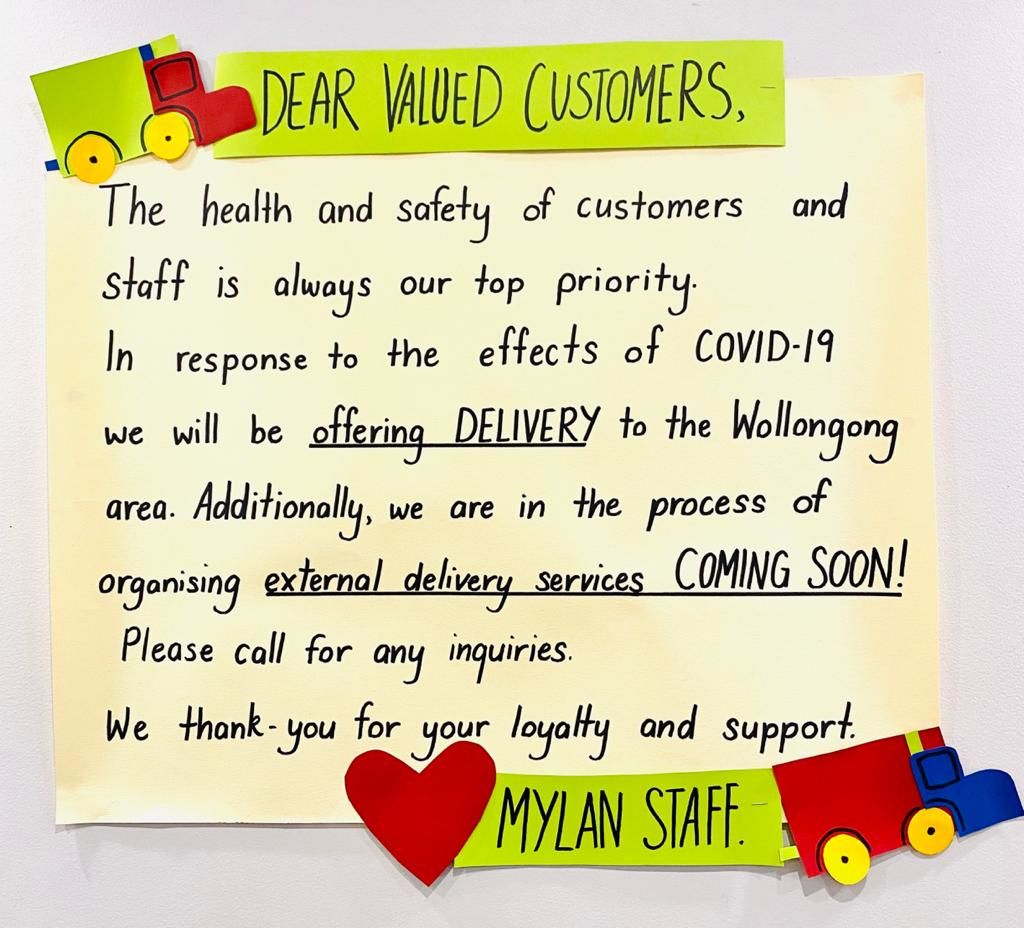 DEAR VALUED CUSTOMERS,
The health and safety of customers and
staff is always our top priority.
In response to the effects of COVID-19
we will be offering DELIVERY to the Wollongong
area. Additionally, we are in the process of
organising external delivery services COMING SOON!
Please call for any inquiries.
We thank-you for your loyalty and support.
MYLAN STAFF.